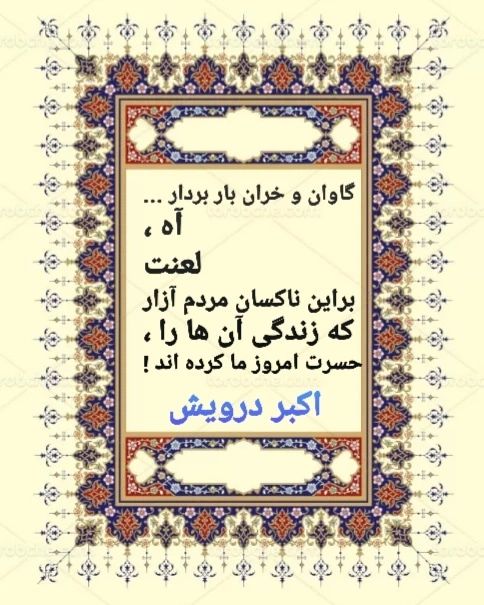 گاوان و خران بار بردار ...
آه ،
لعنت
براین ناکسان مردم آزار
که زندگی آن ها را ،
حسرت امروز ما کرده اند !
اکبر درویش